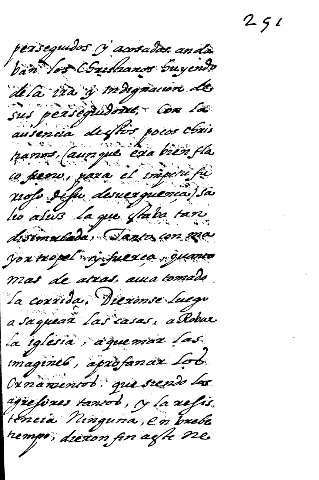 291
perseguidos y acosados anda
ban los Christianos huyendo
de la ira y indignacion de
sus perseguidores. Con la
ausencia destos pocos Chris
tianos, (aunque era bien fla
co freno, para el impetu fu
rioso de su desverguença,) sa
lio a luz la que estaba tan
disimulada, tanto con ma
yor tropel y fuerça, quanto
mas de atras avia tomado
la corrida. Dieronse luego
a saquear las casas, a Robar
la iglesia, a quemar las
imagines, a profanar los
Ornamentos. que siendo los
agresores tantos, y la resis
tencia Ninguna, en brebe
tiempo, dieron fin a este Ne